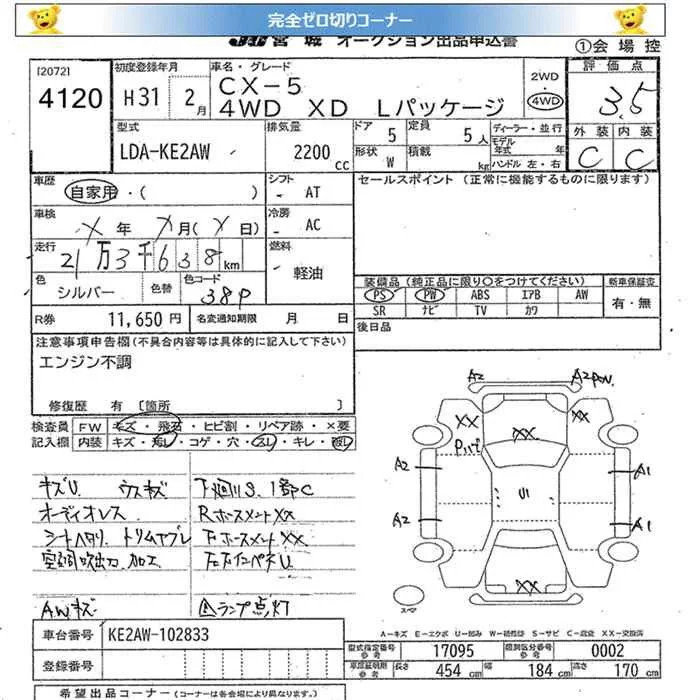 完全ゼロ切りコーナー
JU 宮城 オークション出品申込書
①会場控
[2072]
4120
初度登録年月
H31 2月
車名・グレード
CX-5
4WD XD Lパッケージ
2WD
・
4WD
評価点
3.5
外装 内装
C C
型式
LDA-KE2AW
排気量
2200 cc
ドア 5
定員 5人
形状 W
積載 kg
ディーラー・並行
モデル年式 年
ハンドル 左・右
車歴
自家用・( )
シフト
- AT
セールスポイント (正常に機能するものに限ります)
車検
X年 X月(X日)
冷房
- AC
走行
21万3千638km
燃料
軽油
色
シルバー
色替
色コード
38P
装備品 (純正品に限り〇をつけてください)
新車保証書
PS PW ABS エアB AW
SR ナビ TV カワ
有・無
R券 11,650円
名変通知期限 月 日
後日品
注意事項申告欄 (不具合内容等は具体的に記入して下さい)
エンジン不調
修復歴 有 [箇所 ]
検査員記入欄
FW キズ・飛石・ヒビ割・リペア跡・×要
内装 キズ・汚レ・コゲ・穴・スレ・キレ・破レ
キズU ウスキズ
下廻りS、1部C
オーディオレス
シートヘタリ トリムヤブレ
空調吹出力 加工
AWキズ
ランプ点灯
A2
A2
XX
XX
XX
A2
A1
U1
A2
A1
XX
スマ
A-キズ E-エクボ U-凹み W-補修跡 S-サビ C-腐食 XX-交換済
車台番号 KE2AW-102833
登録番号
型式指定番号 参考 17095
類別区分番号 参考 0002
車庫証明用 参考 長さ 454 cm 幅 184 cm 高さ 170 cm
希望出品コーナー (コーナーは各会場により異なります。)